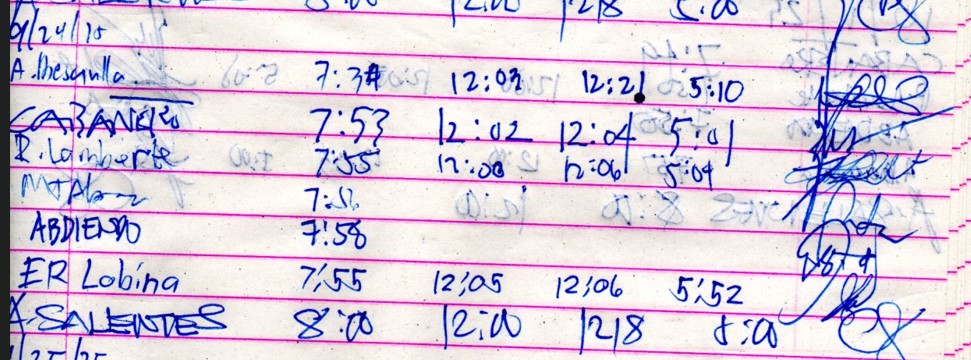 8:00 12:00 1218 5:00
9/24/15
7:34 12:03 12:21 5:10
CABANERO 7:53 12:02 12:04 5:01
R. Lamberte 7:55 12:00 12:06 5:04
7:56
ABDIENDO 7:58
ER Lobina 7:55 12:05 12:06 5:52
A. SALENTES 8:00 12:00 1218 5:00